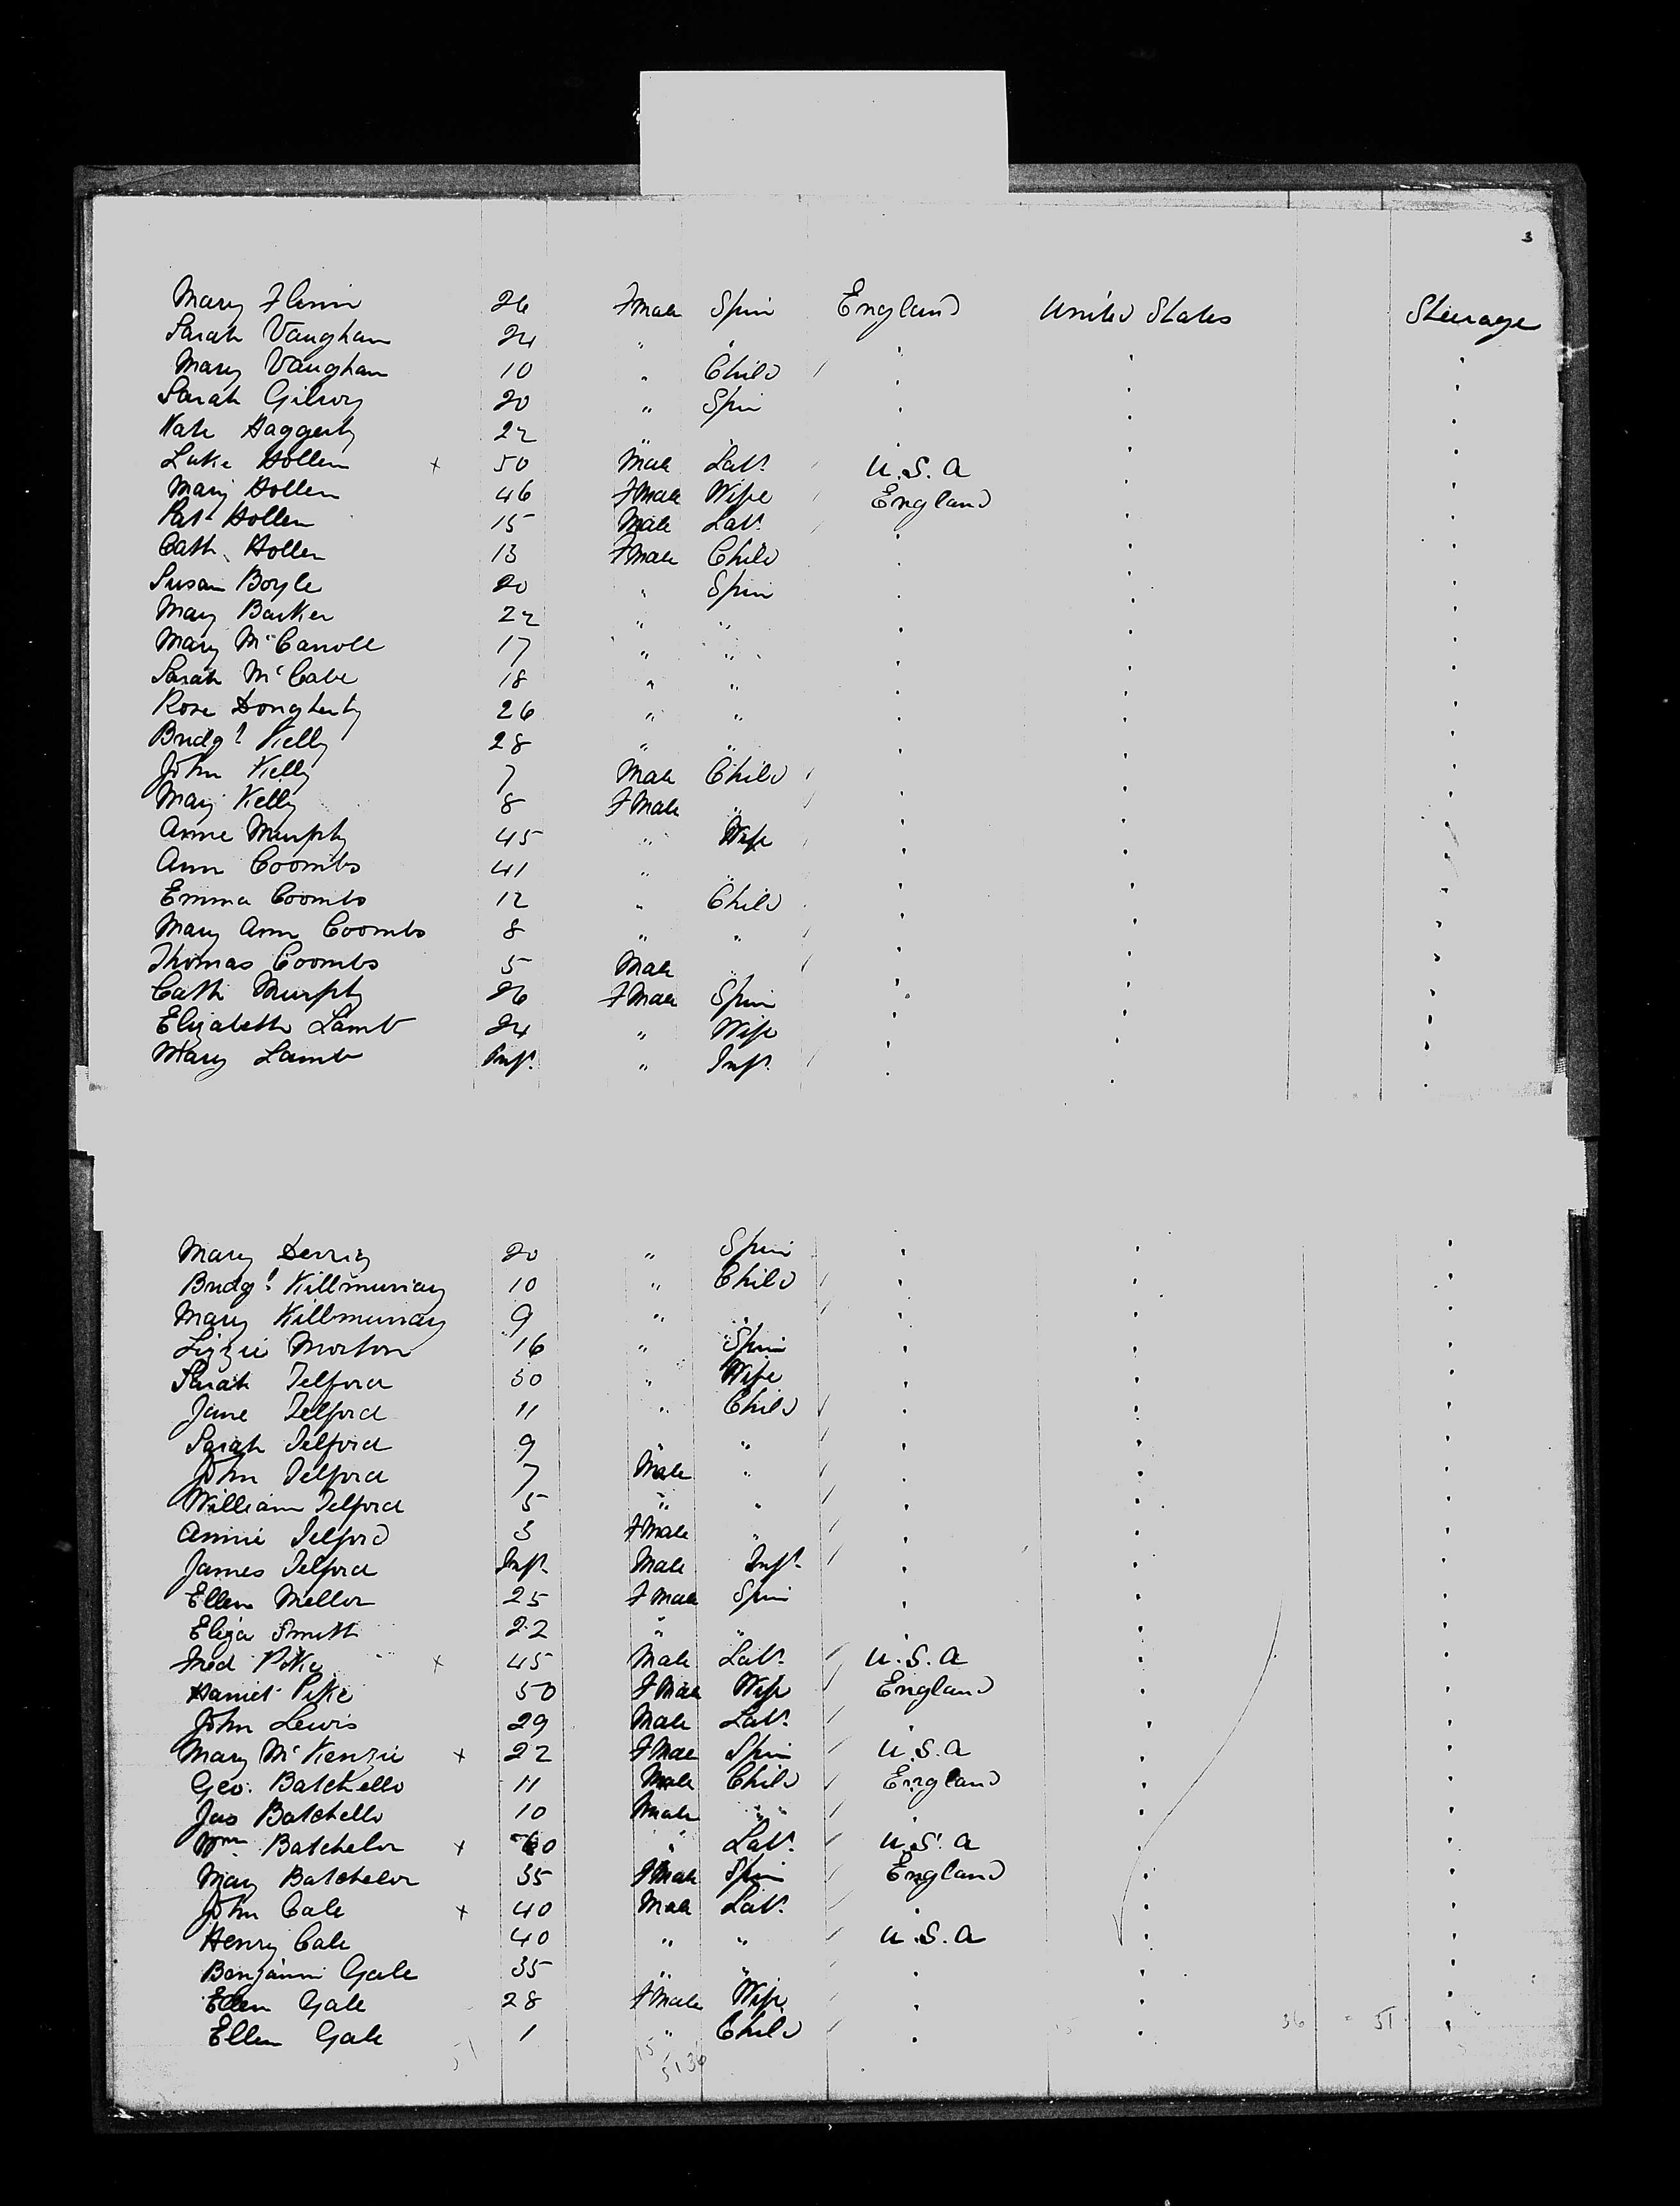 3
Mary Flinn 26 Fmale Spin England United States Steerage
Sarah Vaughan 24 " "
Mary Vaughan 10 " Child /
Sarah Gilroy 20 " Spin
Kate Haggerty 22 " "
Luke Hollen x 50 Male Labr / U.S.A
Mary Hollen 46 Fmale Wife / England
Pat Hollen 15 Male Labr /
Cath. Hollen 13 Fmale Child
Susan Boyle 20 " Spin
Mary Barker 22 " "
Mary McCarroll 17 " "
Sarah McCabe 18 " "
Rose Dougherty 26 " "
Bridgt Kelly 28 " "
John Kelly 7 Male Child /
Mary Kelly 8 Fmale " /
Anne Murphy 45 " Wife /
Ann Coombs 41 " "
Emma Coombs 12 " Child
Mary Ann Coombs 8 " " /
Thomas Coombs 5 Male " /
Cath Murphy 26 Fmale Spin
Elizabeth Lamb 24 " Wife
Mary Lamb Inft " Inft /
Mary Derrig 20 " Spin
Bridgt Killmurray 10 " Child /
Mary Killmurray 9 " " /
Lizzie Morton 16 " Spin
Sarah Telford 30 " Wife
Jane Telford 11 " Child /
Sarah Telford 9 " " /
John Telford 7 Male " /
William Telford 5 " " /
Annie Telford 3 Fmale " /
James Telford Inft Male Inft /
Ellen Mellor 25 Fmale Spin
Eliza Smith 22 " "
Fred Pike x 45 Male Labr / U.S.A
Harriet Pike 50 Fmale Wife / England
John Lewis 29 Male Labr /
Mary McKenzie x 22 Fmale Spin / U.S.A
Geo. Batchello 11 Male Child / England
Jas Batchello 10 Male " /
Wm Batchelor x 60 " Labr / U.S.A
Mary Batchelor 35 Fmale Spin / England
John Cale x 40 Male Labr /
Henry Cale 40 " " / U.S.A
Benjamin Gale 35 " " /
Ellen Gale 28 Fmale Wife /
Ellen Gale 1 " Child / 36 51
51 15 51 36